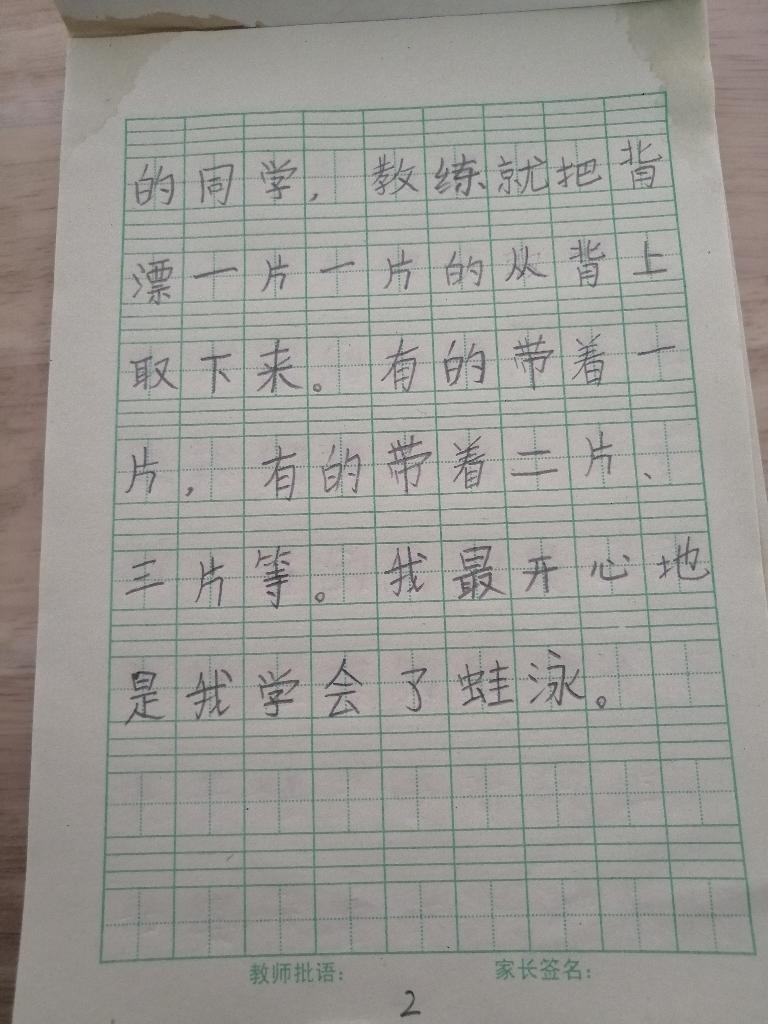 的同学，教练就把背
漂一片一片的从背上
取下来。有的带着一
片，有的带着二片、
三片等。我最开心地
是我学会了蛙泳。
教师批语： 家长签名：
2